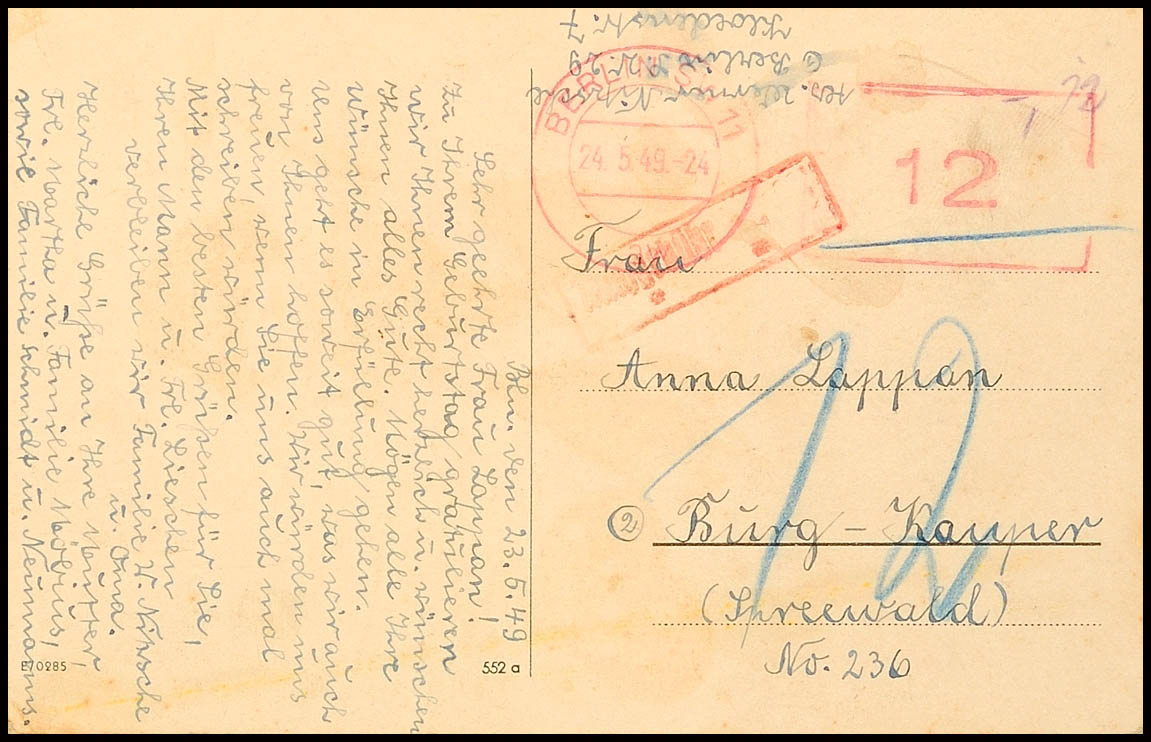 Bln. den 23.5.49
Sehr geehrte Frau Lappan!
Zu Ihrem Geburtstag gratulieren
wir Ihnen recht herzlich u. wünschen
Ihnen alles Gute. Mögen alle Ihre
Wünsche in Erfüllung gehen.
Uns geht es soweit gut, was wir auch
von Ihnen hoffen. Wir würden uns
freuen, wenn Sie uns auch mal
schreiben würden.
Mit den besten Grüßen für Sie,
Ihren Mann u. Frl. Lieschen
verbleiben wir Familie W. Nitzsche
u. Oma.
Herzliche Grüße an Ihre Mutter,
Frl. Martha u. Familie Möbius,
sowie Familie Schmidt u. Neumanns.
E70285
552 a
Abs. Werner Nitzsche
Berlin S.W. 29
Kloedenstr. 7
BERLIN SW 11
24.5.49.-24
12
12
Frau
Anna Lappan
② Burg - Kauper
(Spreewald)
No. 236
12